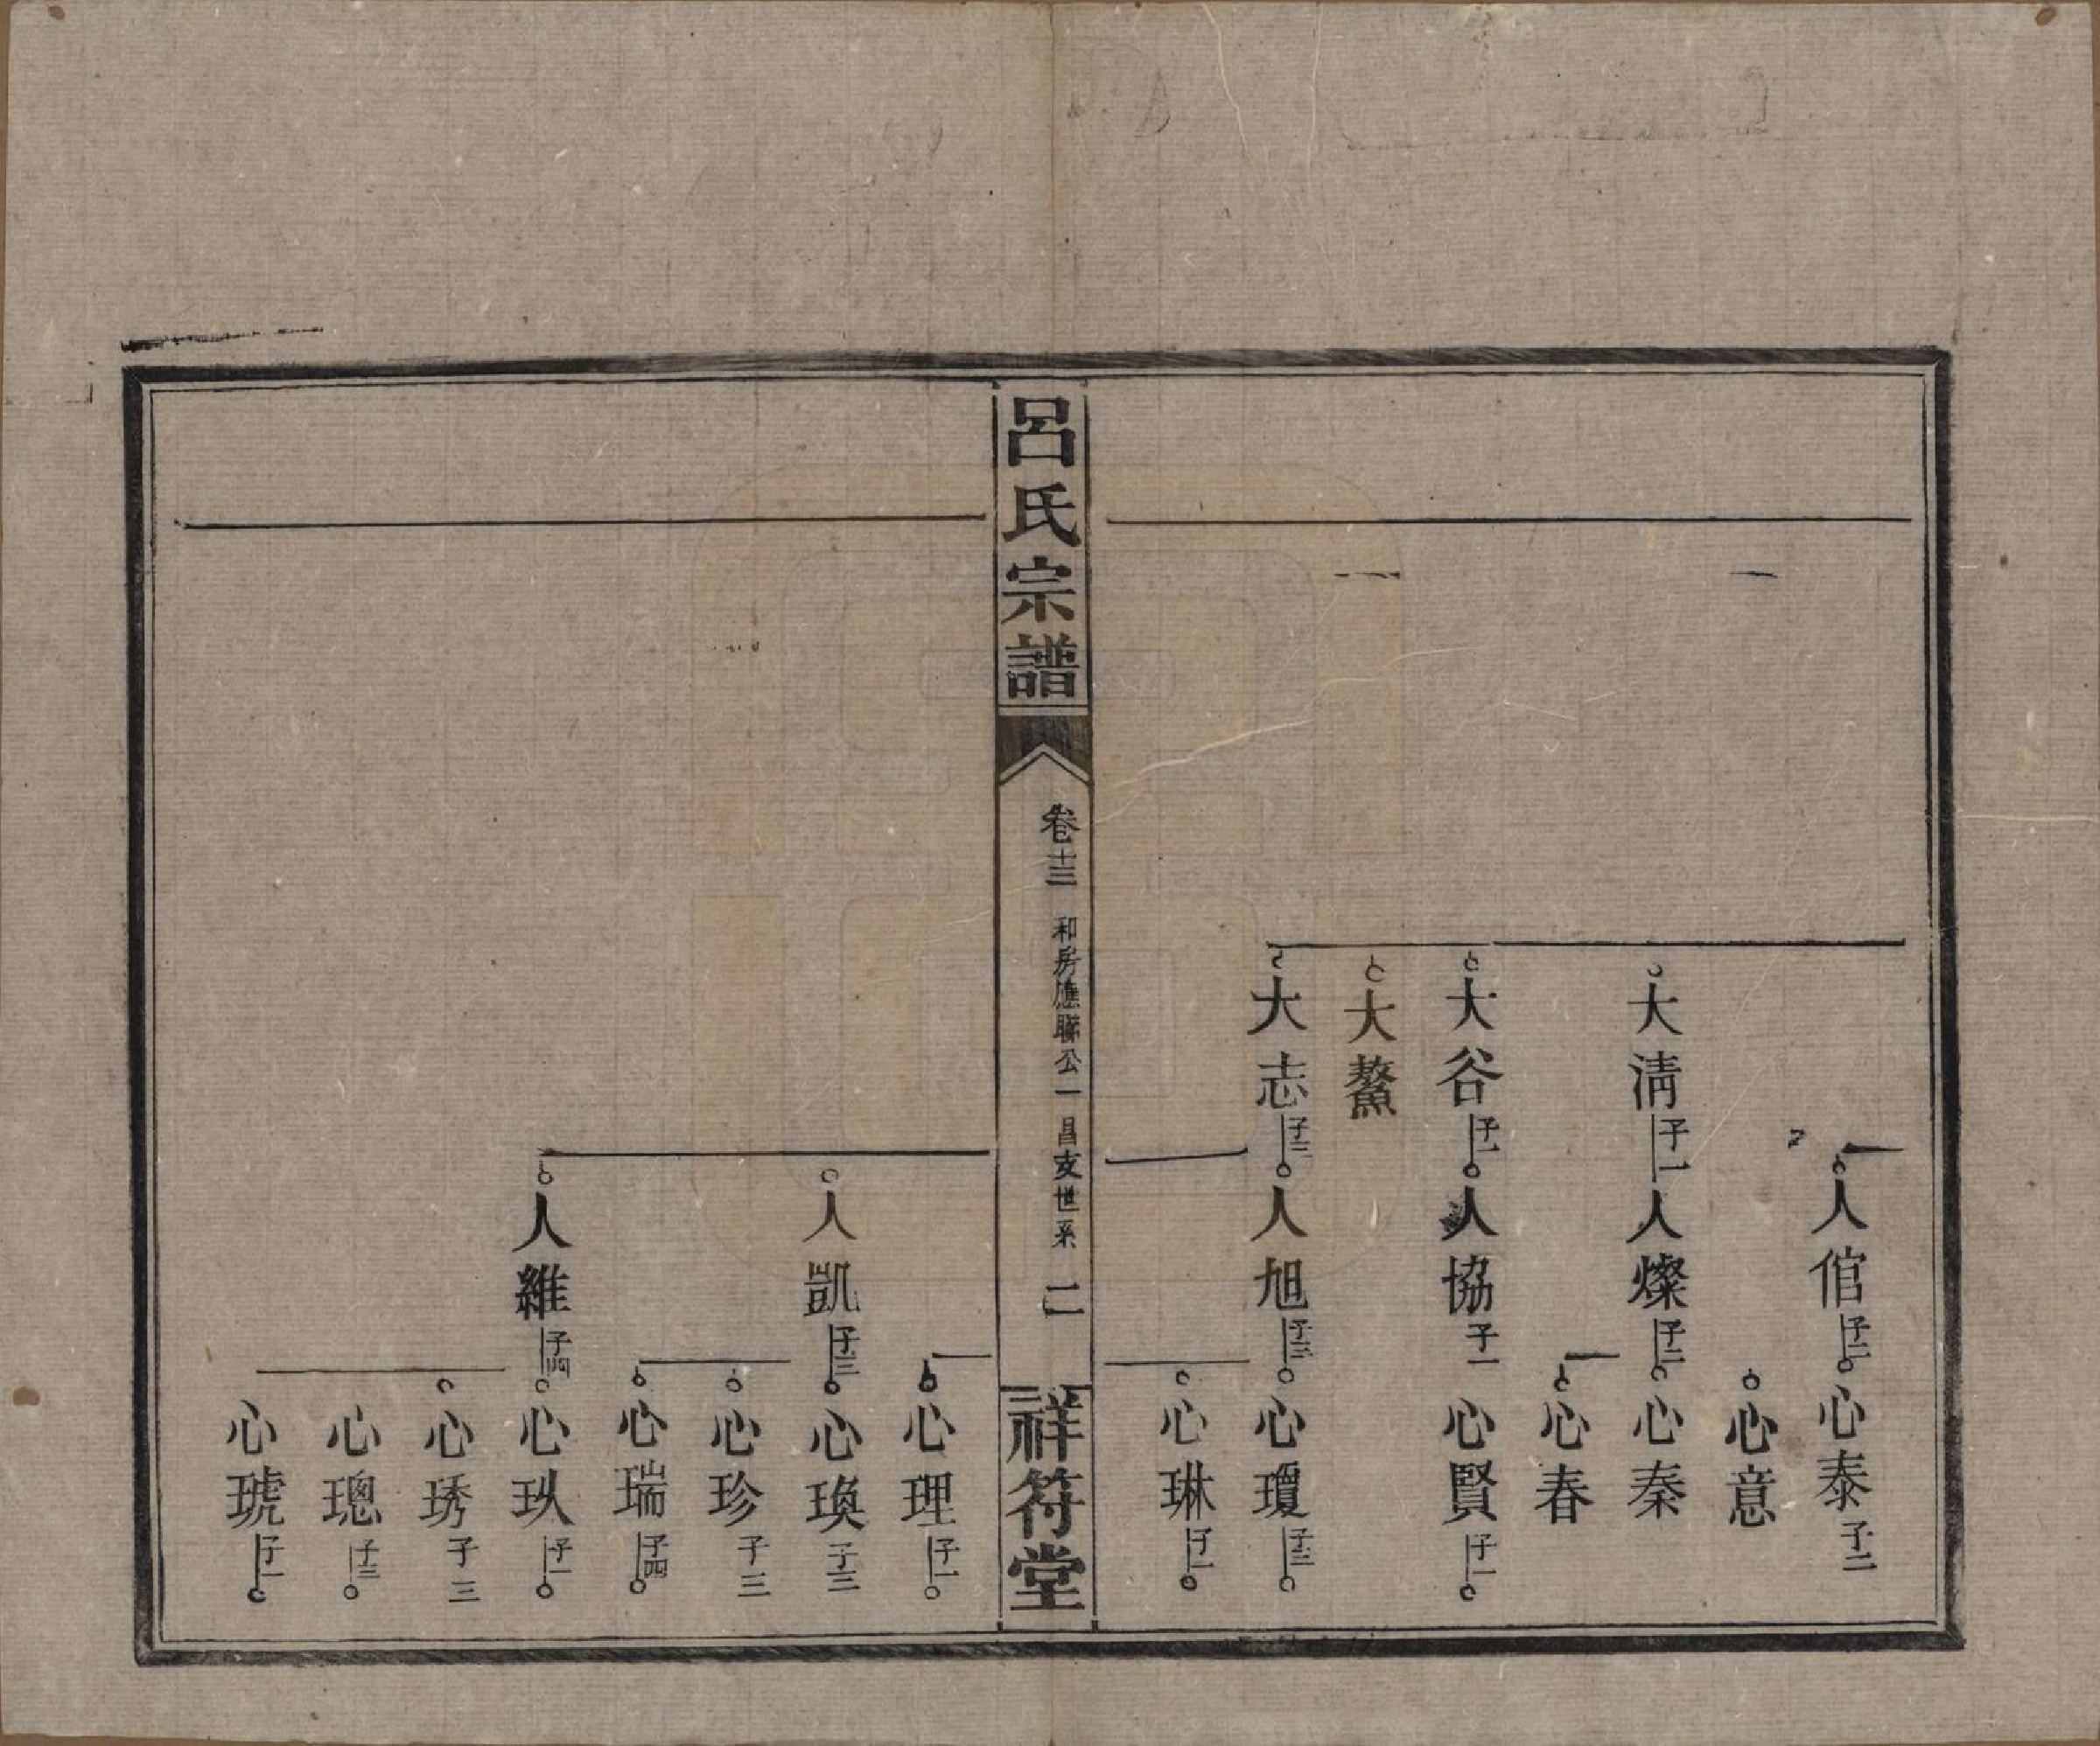 人倌子二
心泰子二
心意
大淸子一
人燦子二
心秦
心春
大谷子一
人協子一
心賢子一
大鰲
大志子三
人旭子三
心瓊子三
心琳子一
呂氏宗譜
卷十三
和房應聯公一昌支世系
二
祥符堂
心理子一
人凱子三
心瑍子三
心珍子三
心瑞子四
人維子四
心玖子一
心琇子三
心璁子三
心琥子一